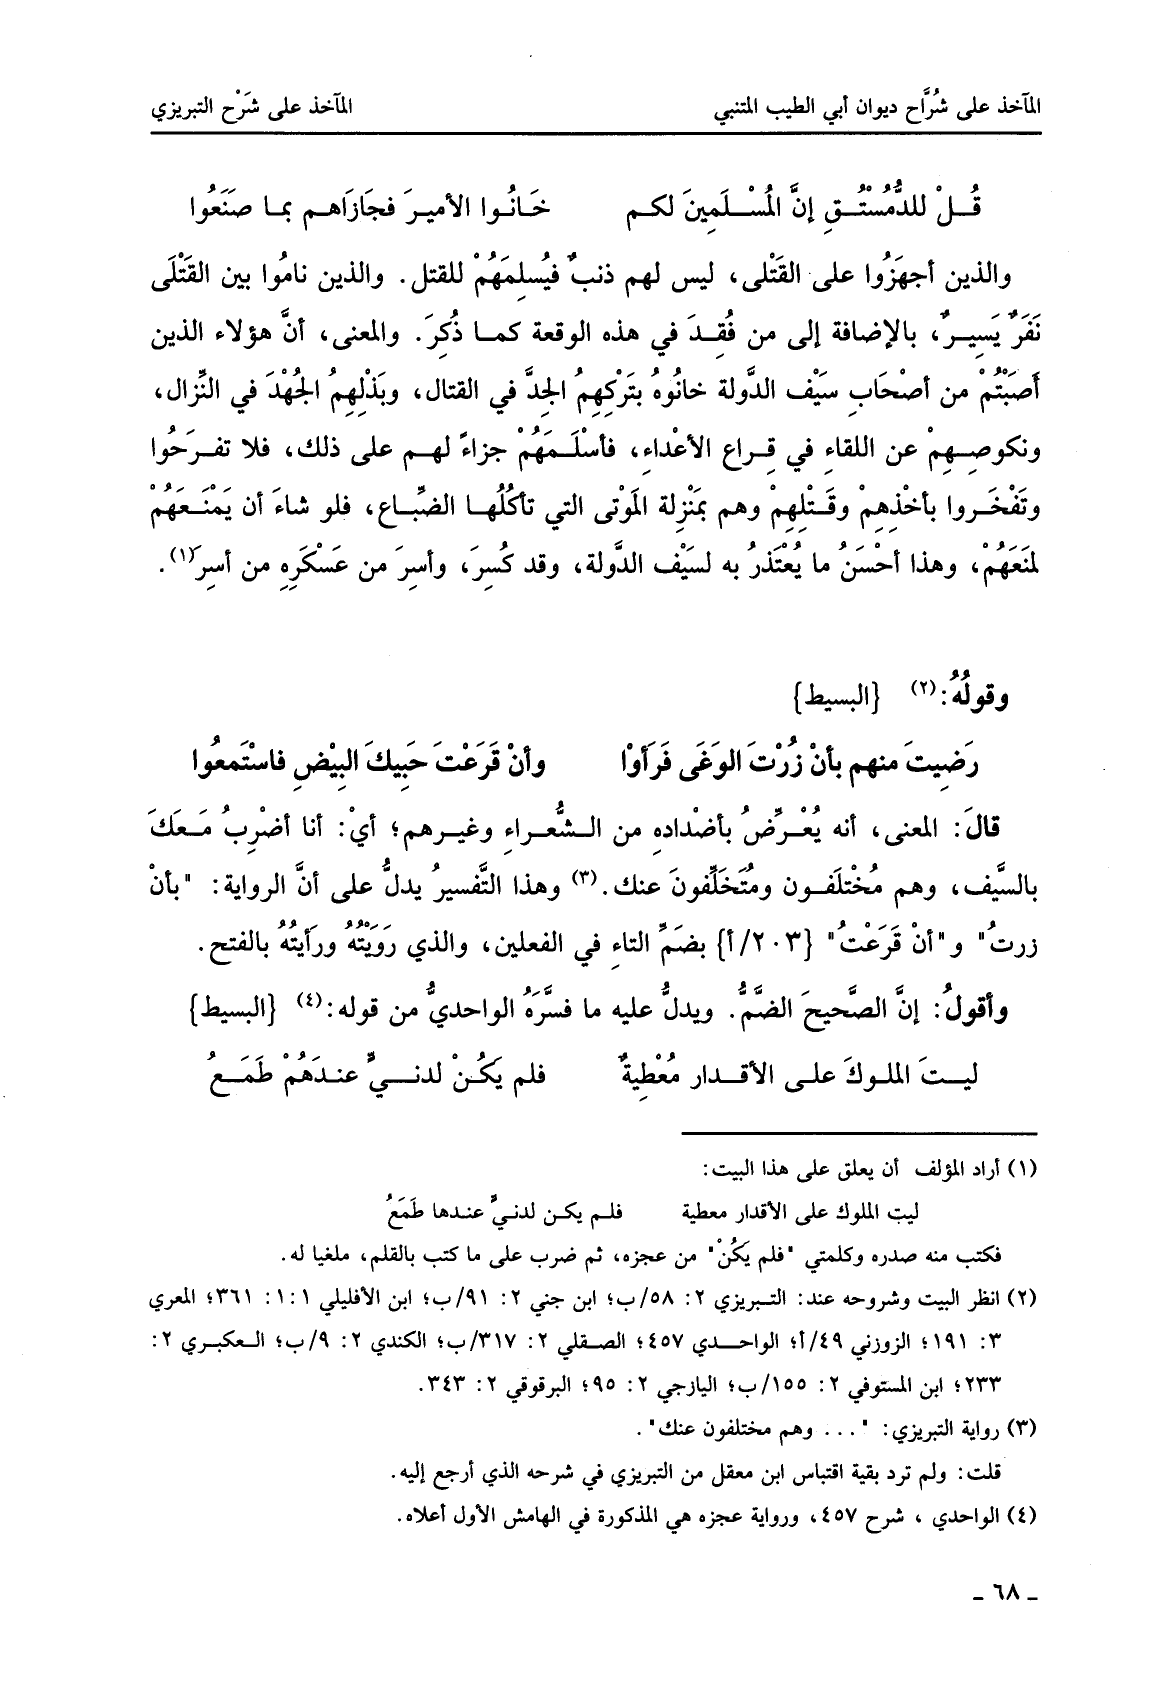 المآخذ على شُرَّاح ديوان أبي الطيب المتنبي المآخذ على شَرْح التبريزي
قُـلْ للدُّمُسْتُـقِ إنَّ المُسْـلَمِينَ لكـم خَـانُـوا الأميـرَ فجَازَاهـم بمـا صنَعُوا
والذين أجهزُوا على القَتْلى، ليس لهم ذنبٌ فيُسلِمَهُمْ للقتل. والذين نامُوا بين القَتْلَى
نَفَرٌ يَسيـرٌ، بالإضافة إلى من فُقِدَ في هذه الوقعة كمـا ذُكِرَ. والمعنى، أنَّ هؤلاء الذين
أَصَبْتُمْ من أصْحَابِ سيَْف الدَّولة خانُوهُ بتَرْكِهِمُ الجدَّ في القتال، وبَذْلِهِمُ الجُهْدَ في النِّزال،
ونكوصِـهِمْ عن اللقاءِ في قِراع الأعْداءِ، فأسْلَـمَهُمْ جزاءً لهـم على ذلك، فلا تفـرَحُوا
وتَفْخَـروا بأخْذِهِمْ وقَـتْلِهِمْ وهم بمَنْزِلة المَوْتى التي تأكُلُهـا الضِّباع، فلو شاءَ أن يَمْنَـعَهُمْ
لمَنَعَهُمْ، وهذا أحْسَنُ ما يُعْتَذرُ به لسَيْف الدَّولة، وقد كُسِرَ، وأسِرَ من عَسْكَرِهِ من أسِرَ(١).
وقولُهُ:(٢) {البسيط}
رَضِيتَ منهم بأنْ زُرْتَ الوَغَى فَرَأَوْا وأنْ قَرَعْتَ حَبِيكَ البِيْضِ فاسْتَمعُوا
قالَ: المعنى، أنه يُعْـرِّضُ بأضْداده من الـشُّعـراء وغيـرهم؛ أيْ: أنا أضْرِبُ مَـعَكَ
بالسَّيف، وهم مُخْتلَفـون ومُتَخَلِّفونَ عنك.(٣) وهذا التَّفسيرُ يدلُّ على أنَّ الرواية: "بأنْ
زرتُ" و"أنْ قَرَعْتُ" {٢٠٣/أ} بضَمِّ التاءِ في الفعلين، والذي رَوَيْتُهُ ورأيتُهُ بالفتح.
وأقولُ: إنَّ الصَّحيحَ الضَّمُّ. ويدلُّ عليه ما فسَّرَهُ الواحديُّ من قوله:(٤) {البسيط}
ليـتَ الملـوكَ علـى الأقـدار مُعْطِيةٌ فلم يَكُـنْ لدنـيٍّ عنـدَهُمْ طَمَـعُ
(١) أراد المؤلف أن يعلق على هذا البيت:
ليت الملوك على الأقدار معطية فلـم يكـن لدنيٍّ عنـدها طَمَعُ
فكتب منه صدره وكلمتي "فلم يَكُنْ" من عجزه، ثم ضرب على ما كتب بالقلم، ملغيا له.
(٢) انظر البيت وشروحه عند: التـبريزي ٢: ٥٨/ب؛ ابن جني ٢: ٩١/ب؛ ابن الأفليلي ١:١: ٣٦١؛ المعري
٣: ١٩١؛ الزوزني ٤٩/أ؛ الواحـدي ٤٥٧؛ الصـقلي ٢: ٣١٧/ب؛ الكندي ٢: ٩/ب؛ العـكبـري ٢:
٢٣٣؛ ابن المستوفي ٢: ١٥٥/ب؛ اليازجي ٢: ٩٥؛ البرقوقي ٢: ٣٤٣.
(٣) رواية التبريزي: "... وهم مختلفون عنك".
قلت: ولم ترد بقية اقتباس ابن معقل من التبريزي في شرحه الذي أرجع إليه.
(٤) الواحدي ، شرح ٤٥٧، ورواية عجزه هي المذكورة في الهامش الأول أعلاه.
ـ ٦٨ ـ